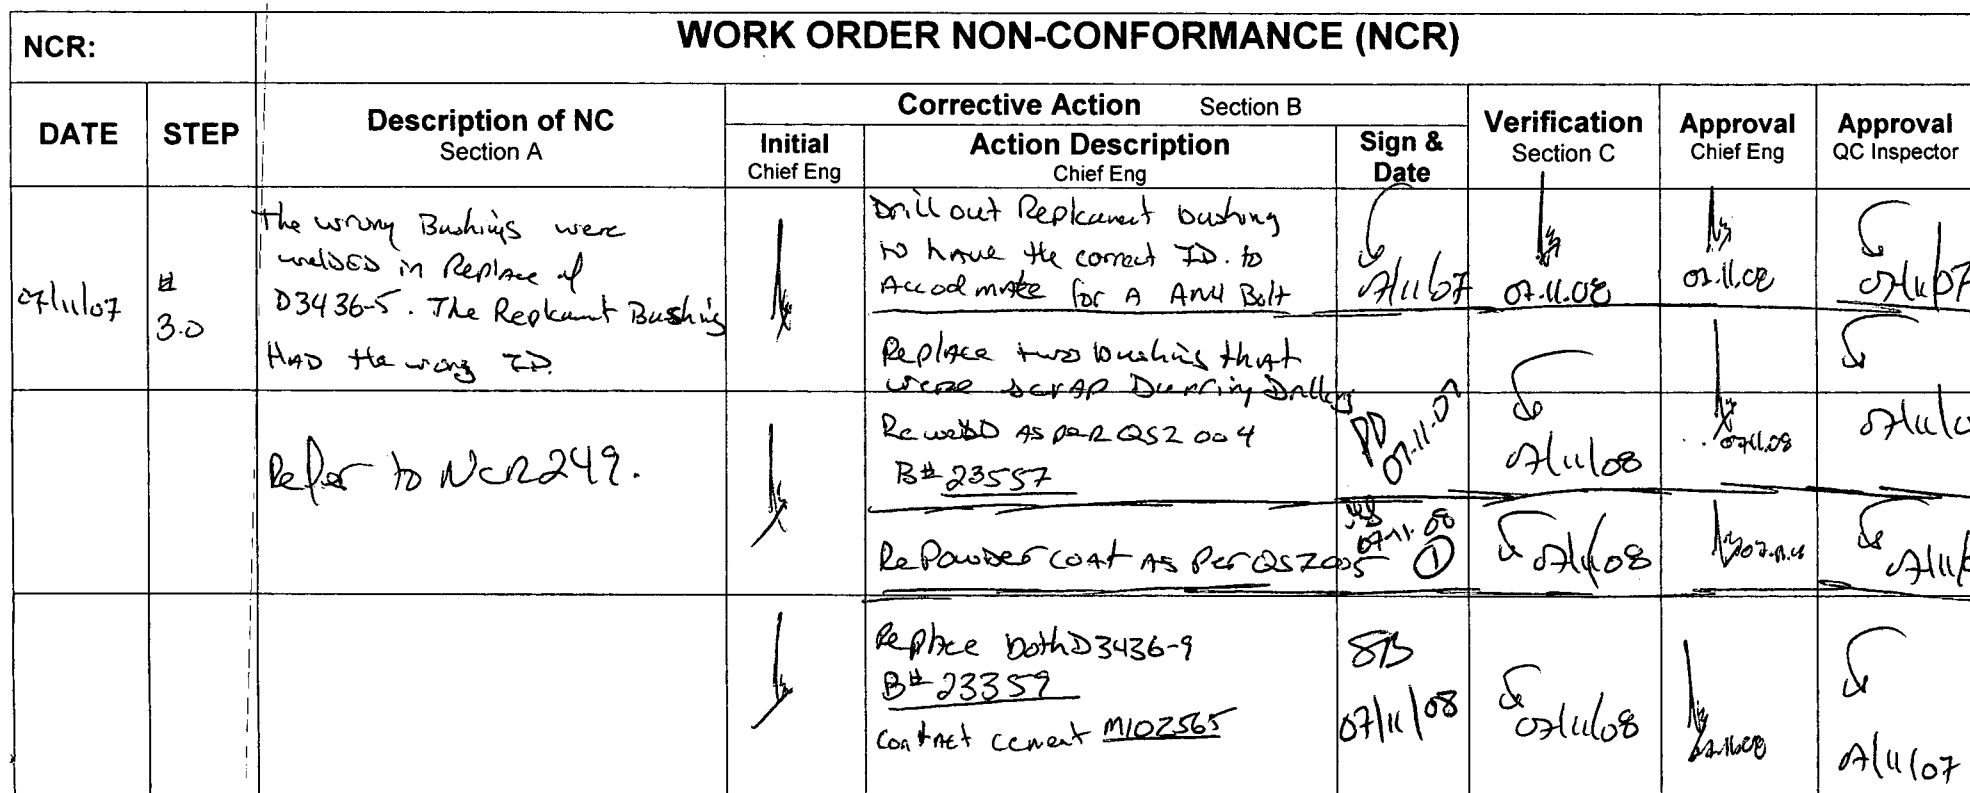 NCR:
WORK ORDER NON-CONFORMANCE (NCR)
DATE
STEP
Description of NC
Section A
Corrective Action Section B
Initial
Chief Eng
Action Description
Chief Eng
Sign &
Date
Verification
Section C
Approval
Chief Eng
Approval
QC Inspector
07/11/07
#
3.0
the wrong Bushings were
welDED in Replace of
D3436-5. The Replcament Bushing
HAD the wrong ID.
Drill out Replcament bushing
to have the correct ID. to
Accodmate for A AN4 Bolt
07/11/07
07.11.08
07.11.08
07/11/07
Replace two bushing that
were scrap Durring Drilling
Refer to NCR249.
Re weldD AS per QSZ 004
B# 23557
PD
07.11.07
07/11/08
07.11.08
07/11/0
Re Powder COAT AS Per QSZ005
07-11-08
1
07/11/08
07.11.08
07/11/0
Replace both D3436-9
B# 23359
contact cement M102565
SB
07/11/08
07/11/08
07.11.08
07/11/07